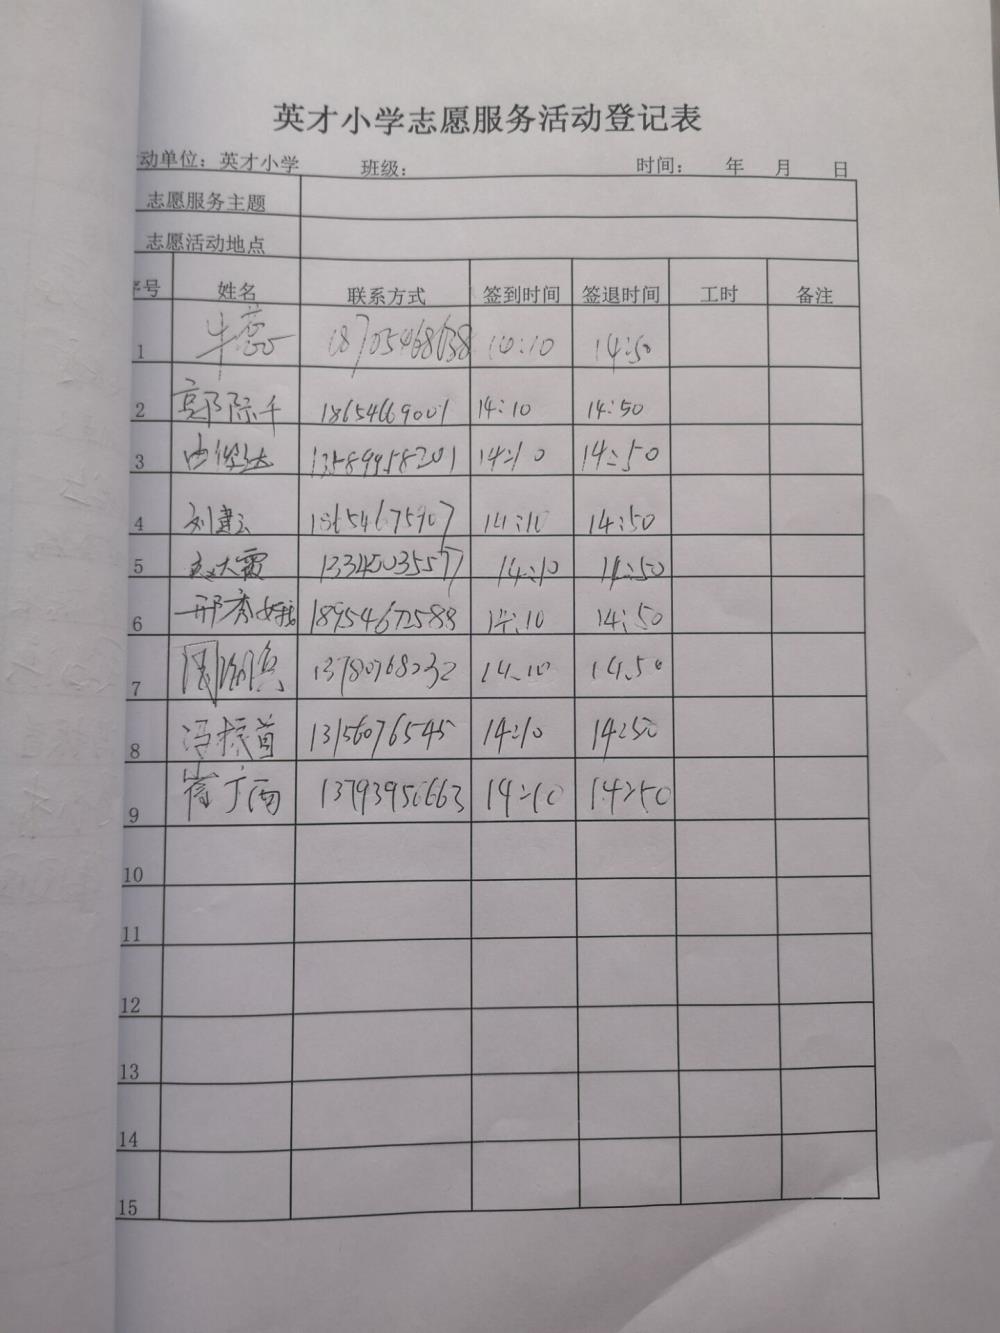 英才小学志愿服务活动登记表
动单位：英才小学 班级： 时间： 年 月 日
志愿服务主题
志愿活动地点
序号 姓名 联系方式 签到时间 签退时间 工时 备注
1 牛蕊 18705468638 14:10 14:50
2 14:10 14:50
3 13589958201 14:10 14:50
4 刘建云 13654675907 14:10 14:50
5 赵大霞 13345035577 14:10 14:50
6 邢秀娥 18954672588 14:10 14:50
7 13780768232 14:10 14:50
8 冯振首 13156076545 14:10 14:50
9 崔广西 13793956663 14:10 14:50
10
11
12
13
14
15